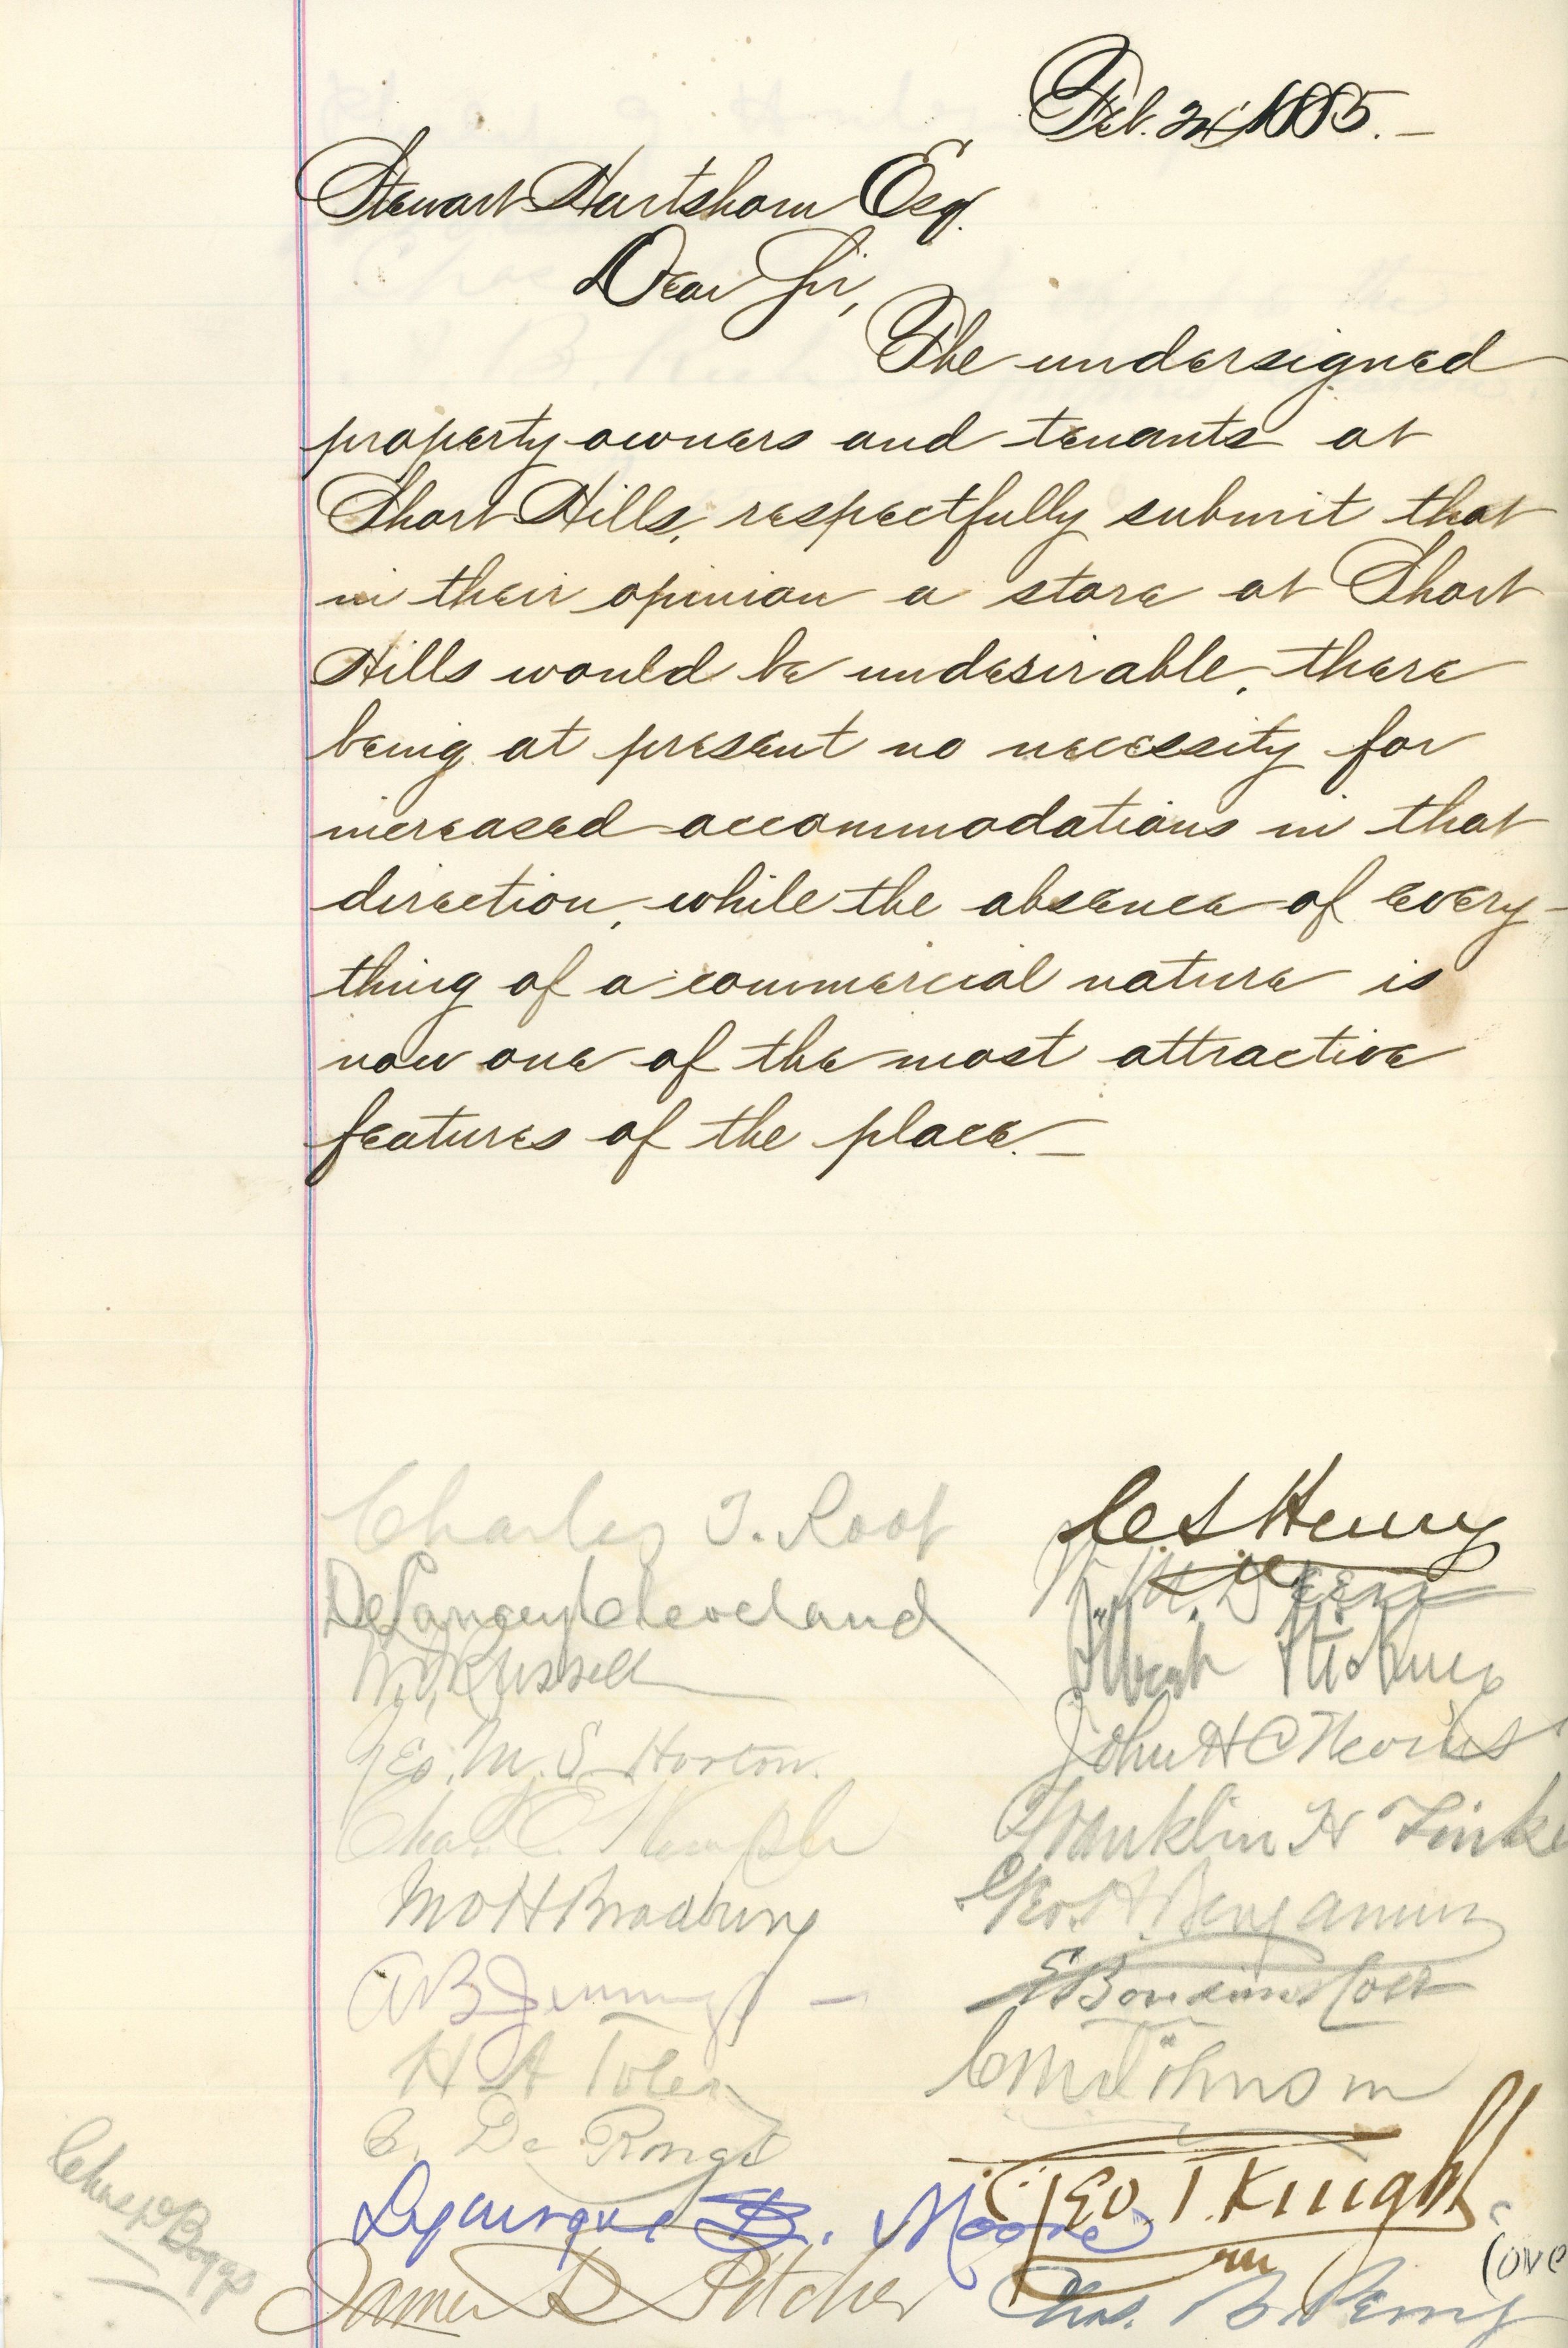 Feb. 24, 1885. —
Stewart Hartshorn Esq.
Dear Sir,
The undersigned
property owners and tenants at
Short Hills, respectfully submit that
in their opinion a store at Short
Hills would be undesirable, there
being at present no necessity for
increased accommodations in that
direction, while the absence of every-
thing of a commercial nature is
now one of the most attractive
features of the place. —
Charles T. Root
DeLancey Cleveland
W. D. Russell
Geo. M. S. Horton.
Chas. E.
M O H Bradbury
A B Jennings —
H A Toler
C. De Rongé
Lycurgus B. Moore
James R Pitcher
Chas P Boggs
C S Henry
W. M. Deen
Albert Stickney
John H C Nevius
Franklin H Tinker
Geo. H. Benjamin
E Boudinot Colt
C M Johnson
Geo. T. Knight
Chas. B. Perry
(ove